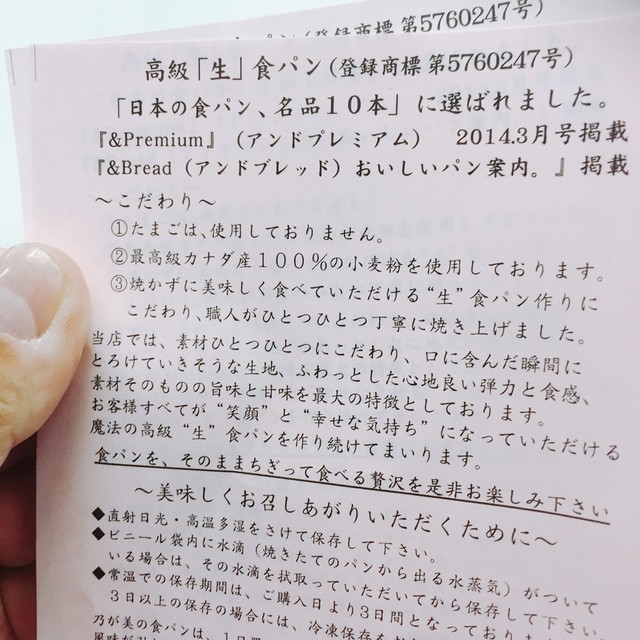 パン（登録商標 第5760247号）
高級「生」食パン（登録商標 第5760247号）
「日本の食パン、名品１０本」に選ばれました。
『&Premium』（アンドプレミアム）　2014.3月号掲載
『&Bread（アンドブレッド）おいしいパン案内。』掲載
～こだわり～
①たまごは、使用しておりません。
②最高級カナダ産１００％の小麦粉を使用しております。
③焼かずに美味しく食べていただける“生”食パン作りに
こだわり、職人がひとつひとつ丁寧に焼き上げました。
当店では、素材ひとつひとつにこだわり、口に含んだ瞬間に
とろけていきそうな生地、ふわっとした心地良い弾力と食感、
素材そのものの旨味と甘味を最大の特徴としております。
お客様すべてが“笑顔”と“幸せな気持ち”になっていただける
魔法の高級“生”食パンを作り続けてまいります。
食パンを、そのままちぎって食べる贅沢を是非お楽しみ下さい
～美味しくお召しあがりいただくために～
◆直射日光・高温多湿をさけて保存して下さい。
◆ビニール袋内に水滴（焼きたてのパンから出る水蒸気）がついて
いる場合は、その水滴を拭取っていただいてから保存して下さい。
◆常温での保存期間は、ご購入日より3日間となっております
３日以上の保存の場合には、冷凍保存をお
乃が美の食パンは、１日置
風味が